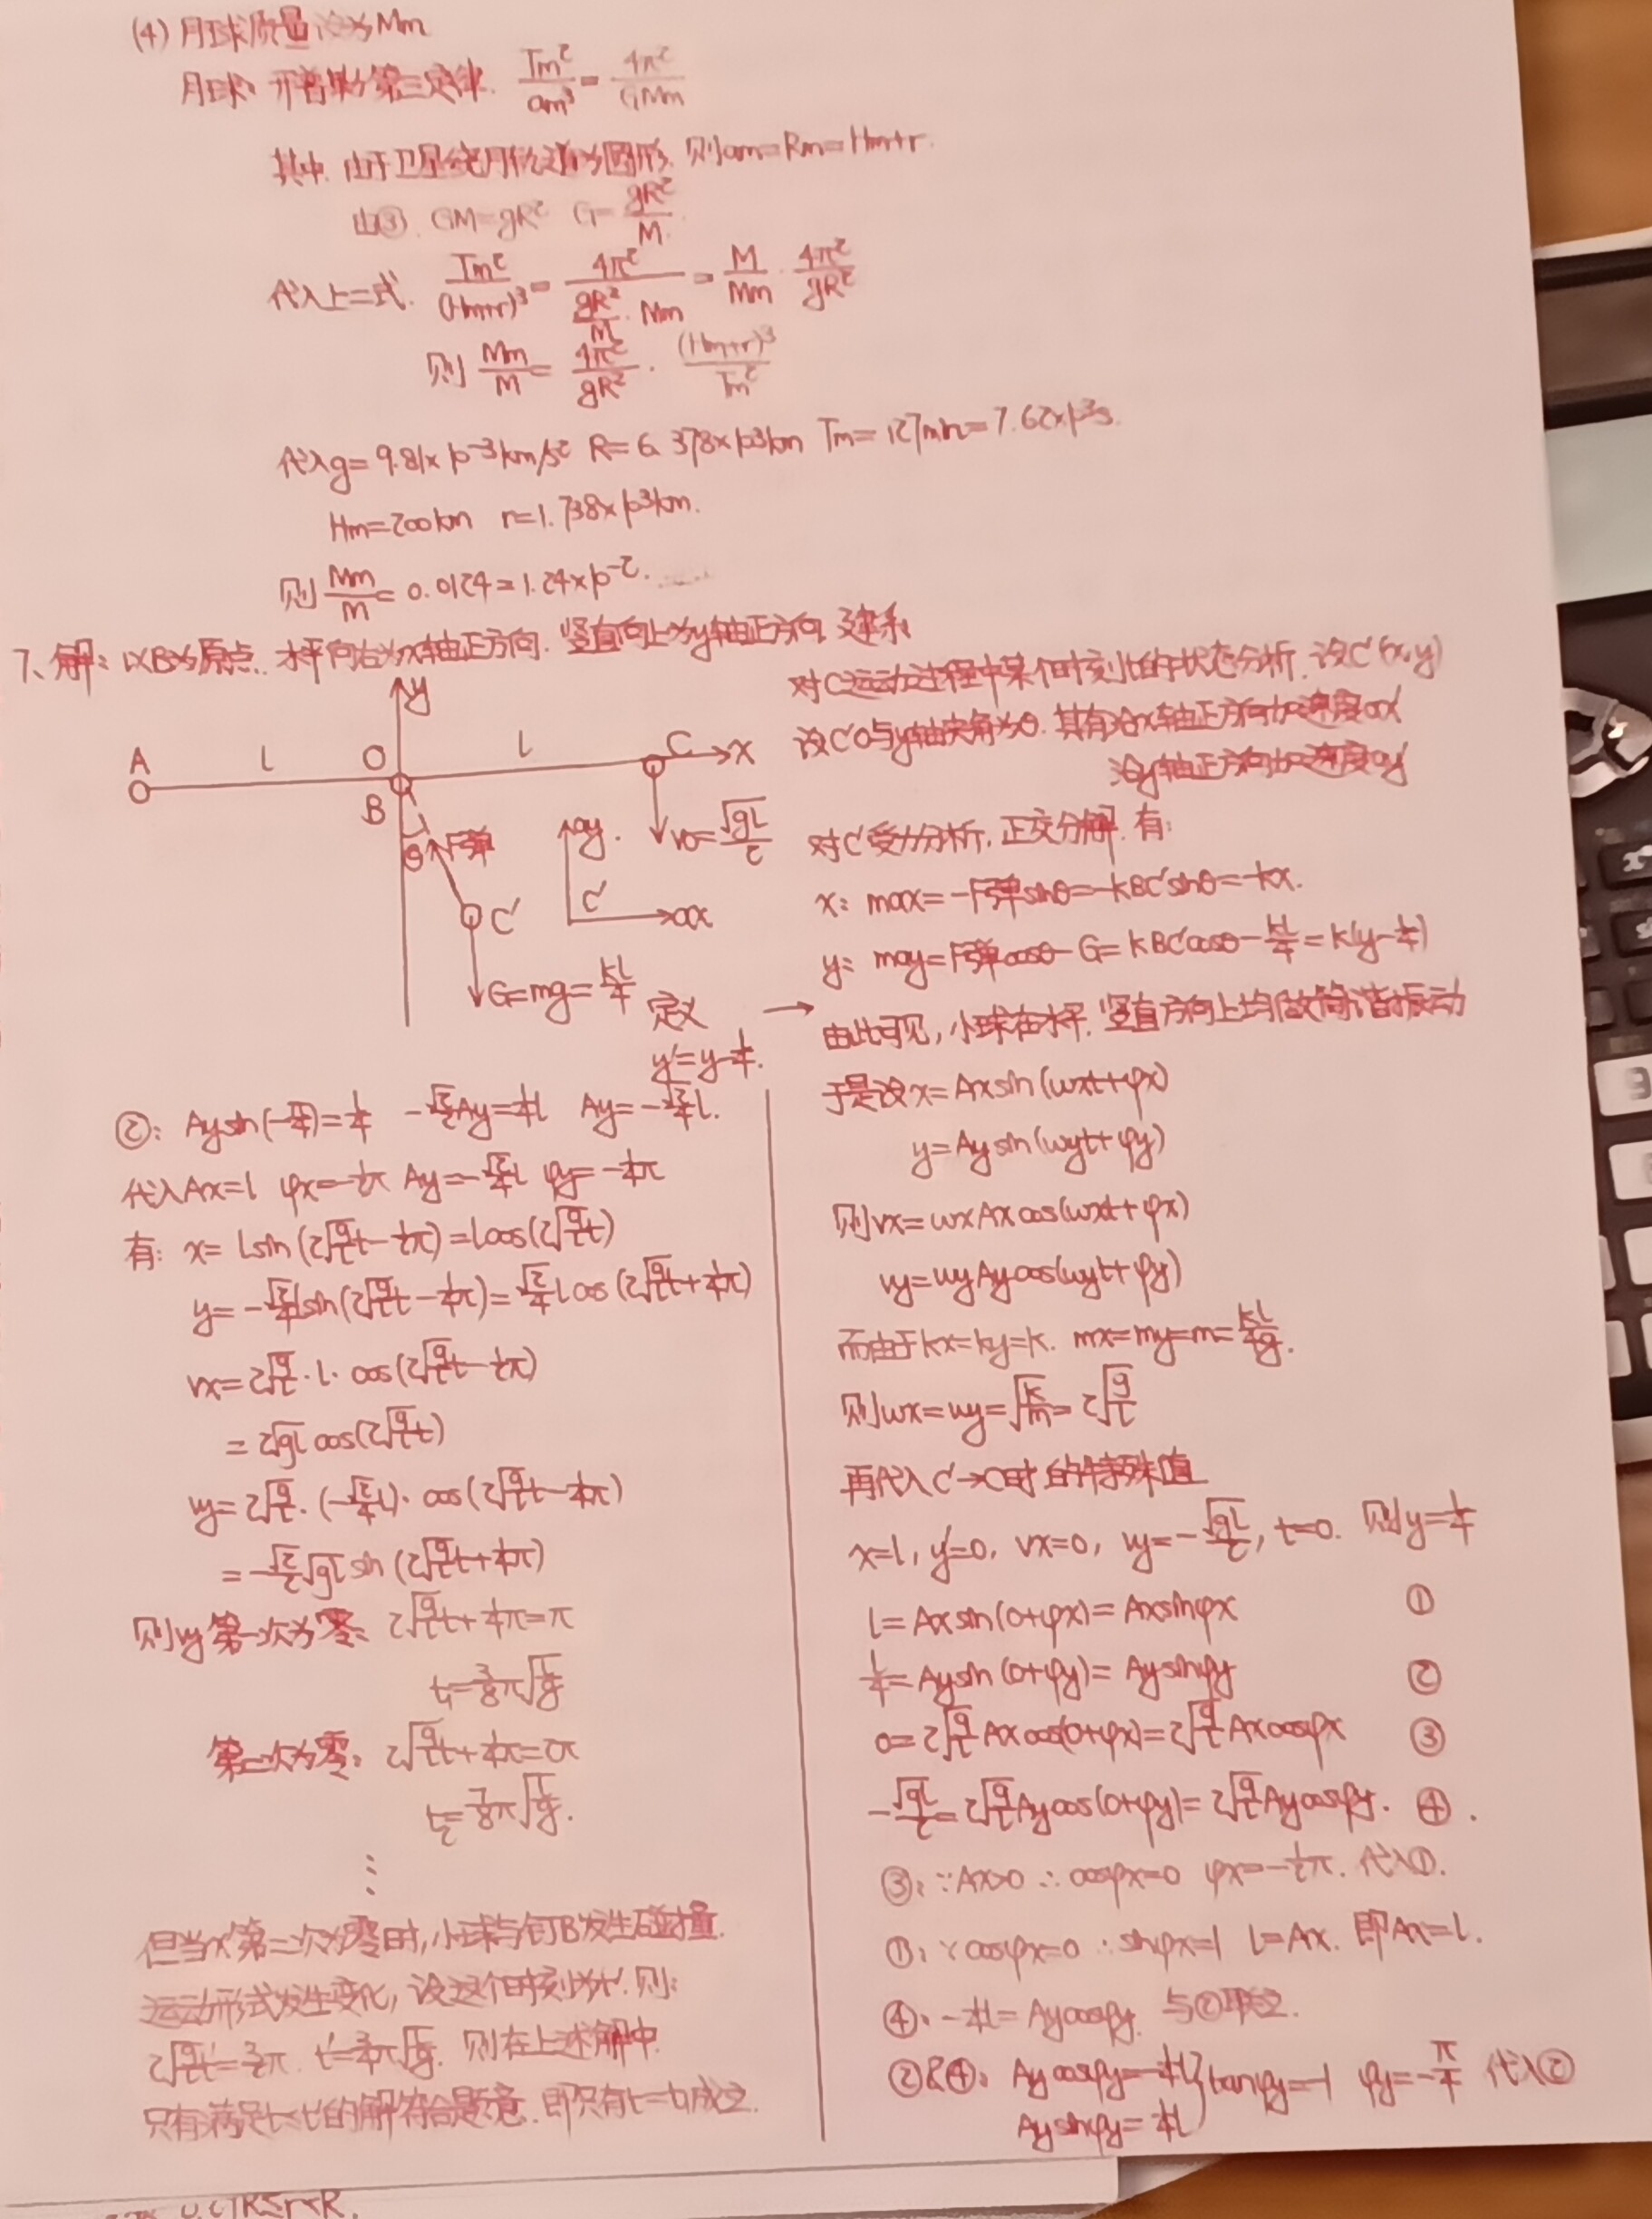 (4) 月球质量设为Mm
月球: 开普勒第三定律. Tm²/am³ = 4π²/GMm
其中, 由于卫星绕月轨道为圆形, 则am=Rm=Hm+r.
由③. GM=gR² G=gR²/M.
代入上一式. Tm²/(Hm+r)³ = 4π²/(gR²/M · Mm) = M/Mm · 4π²/gR²
则 Mm/M = 4π²/gR² · (Hm+r)³/Tm²
代入g=9.81×10⁻³km/s² R=6.378×10³km Tm=127min=7.62×10³s.
Hm=200km r=1.738×10³km.
则 Mm/M = 0.0124=1.24×10⁻².
7、解: 以B为原点. 水平向右为x轴正方向. 竖直向上为y轴正方向, 建系
A l O B l C x y
θ F弹 C' v₀=√gl/2
ay. C' ax
G=mg=kl/4
对C运动过程中某个时刻t的状态分析. 设C'(x,y)
设C'O与y轴夹角为θ. 其有沿x轴正方向加速度ax
沿y轴正方向加速度ay
对C'受力分析, 正交分解. 有:
x: max=-F弹sinθ=-kBC'sinθ=-kx.
y: may=F弹cosθ-G=kBC'cosθ-kl/4=k(y-l/4)
定义 →
y'=y-l/4.
由此可见, 小球在水平. 竖直方向上均做简谐振动
于是设x=Axsin(ωxt+φx)
y=Aysin(ωyt+φy)
则vx=ωxAxcos(ωxt+φx)
vy=ωyAycos(ωyt+φy)
而由于kx=ky=k. mx=my=m=kl/4g.
则ωx=ωy=√(k/m)=2√(g/l)
再代入C'→C时的特殊值
x=l, y'=0, vx=0, vy=-√gl/2, t=0. 则y=l/4
l=Axsin(0+φx)=Axsinφx ①
l/4=Aysin(0+φy)=Aysinφy ②
0=2√(g/l)Axcos(0+φx)=2√(g/l)Axcosφx ③
-√gl/2=2√(g/l)Aycos(0+φy)=2√(g/l)Aycosφy. ④.
③: ∵Ax>0 ∴cosφx=0 φx=-½π. 代入①.
①: ∵cosφx=0 ∴sinφx=1 l=Ax. 即Ax=l.
④: -¼l=Aycosφy. 与②联立.
②&④: Aycosφy=-¼l } tanφy=-1 φy=-π/4 代入②
Aysinφy=¼l
②: Aysin(-π/4)=l/4 -√2/2Ay=¼l Ay=-√2/4l.
代入Ax=l φx=-½π Ay=-√2/4l φy=-¼π
有: x=lsin(2√(g/l)t-½π)=lcos(2√(g/l)t)
y=-√2/4lsin(2√(g/l)t-¼π)=√2/4lcos(2√(g/l)t+¼π)
vx=2√(g/l)·l·cos(2√(g/l)t-½π)
=2√glcos(2√(g/l)t)
vy=2√(g/l)·(-√2/4l)·cos(2√(g/l)t-¼π)
=-√2/2√glsin(2√(g/l)t+¼π)
则vy第一次为零: 2√(g/l)t+¼π=π
t₁=3/8π√(l/g)
第二次为零: 2√(g/l)t+¼π=2π
t₂=7/8π√(l/g).
⋮
但当x第二次为零时, 小球与钉B发生碰撞.
运动形式发生变化, 设这个时刻为t'. 则:
2√(g/l)t'=3/2π. t'=¾π√(l/g). 则在上述解中.
只有满足t<t'的解符合题意. 即只有t=t₁成立.